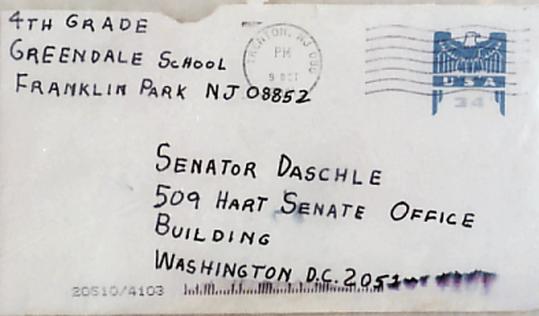 4TH GRADE
GREENDALE SCHOOL
FRANKLIN PARK NJ 08852
TRENTON, NJ
PM
9 OCT
USA
34
SENATOR DASCHLE
509 HART SENATE OFFICE
BUILDING
WASHINGTON D.C. 205
20510/4103